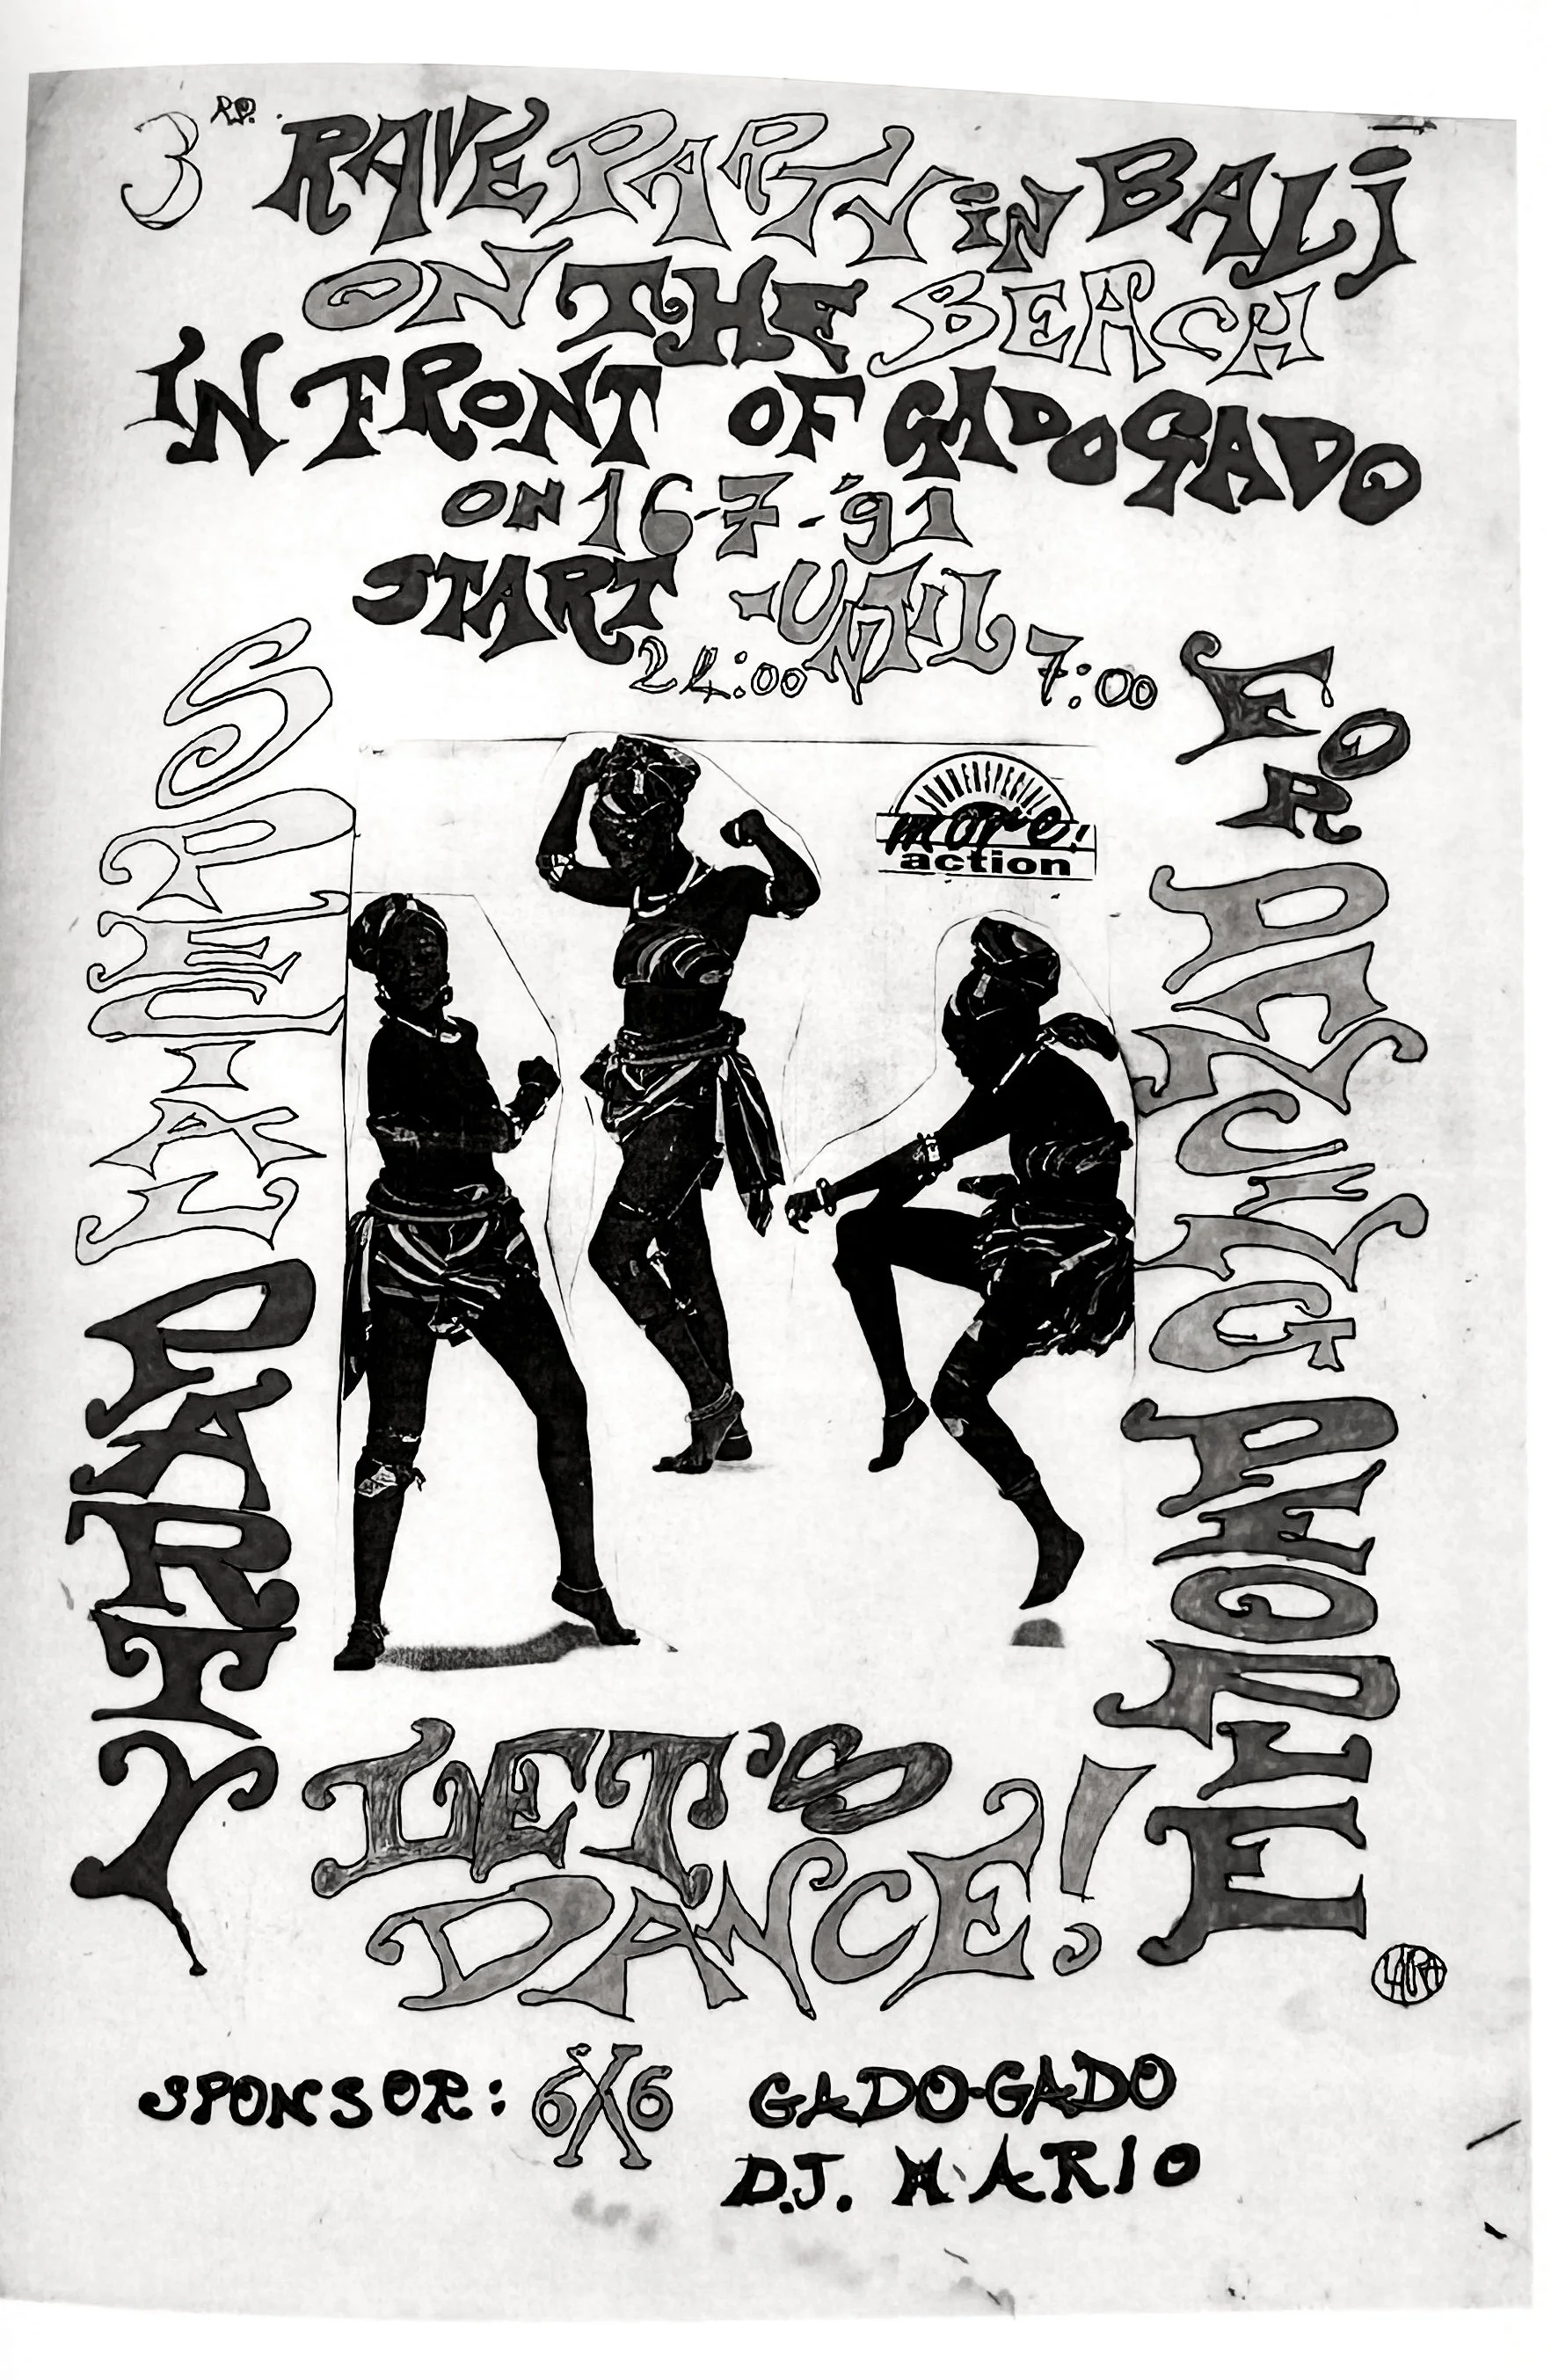 3RD. RAVE PARTY iN BALi
ON THE BEACH
IN FRONT OF GADOGADO
ON 16-7-'91
START 24:00 - UNTIL 7:00
SPECIAL PARTY
SUMMERSPECIAL
more!
action
FOR PEOPLE
LET'S
DANCE!
SPONSOR: 6X6 GADO-GADO
D.J. MARIO